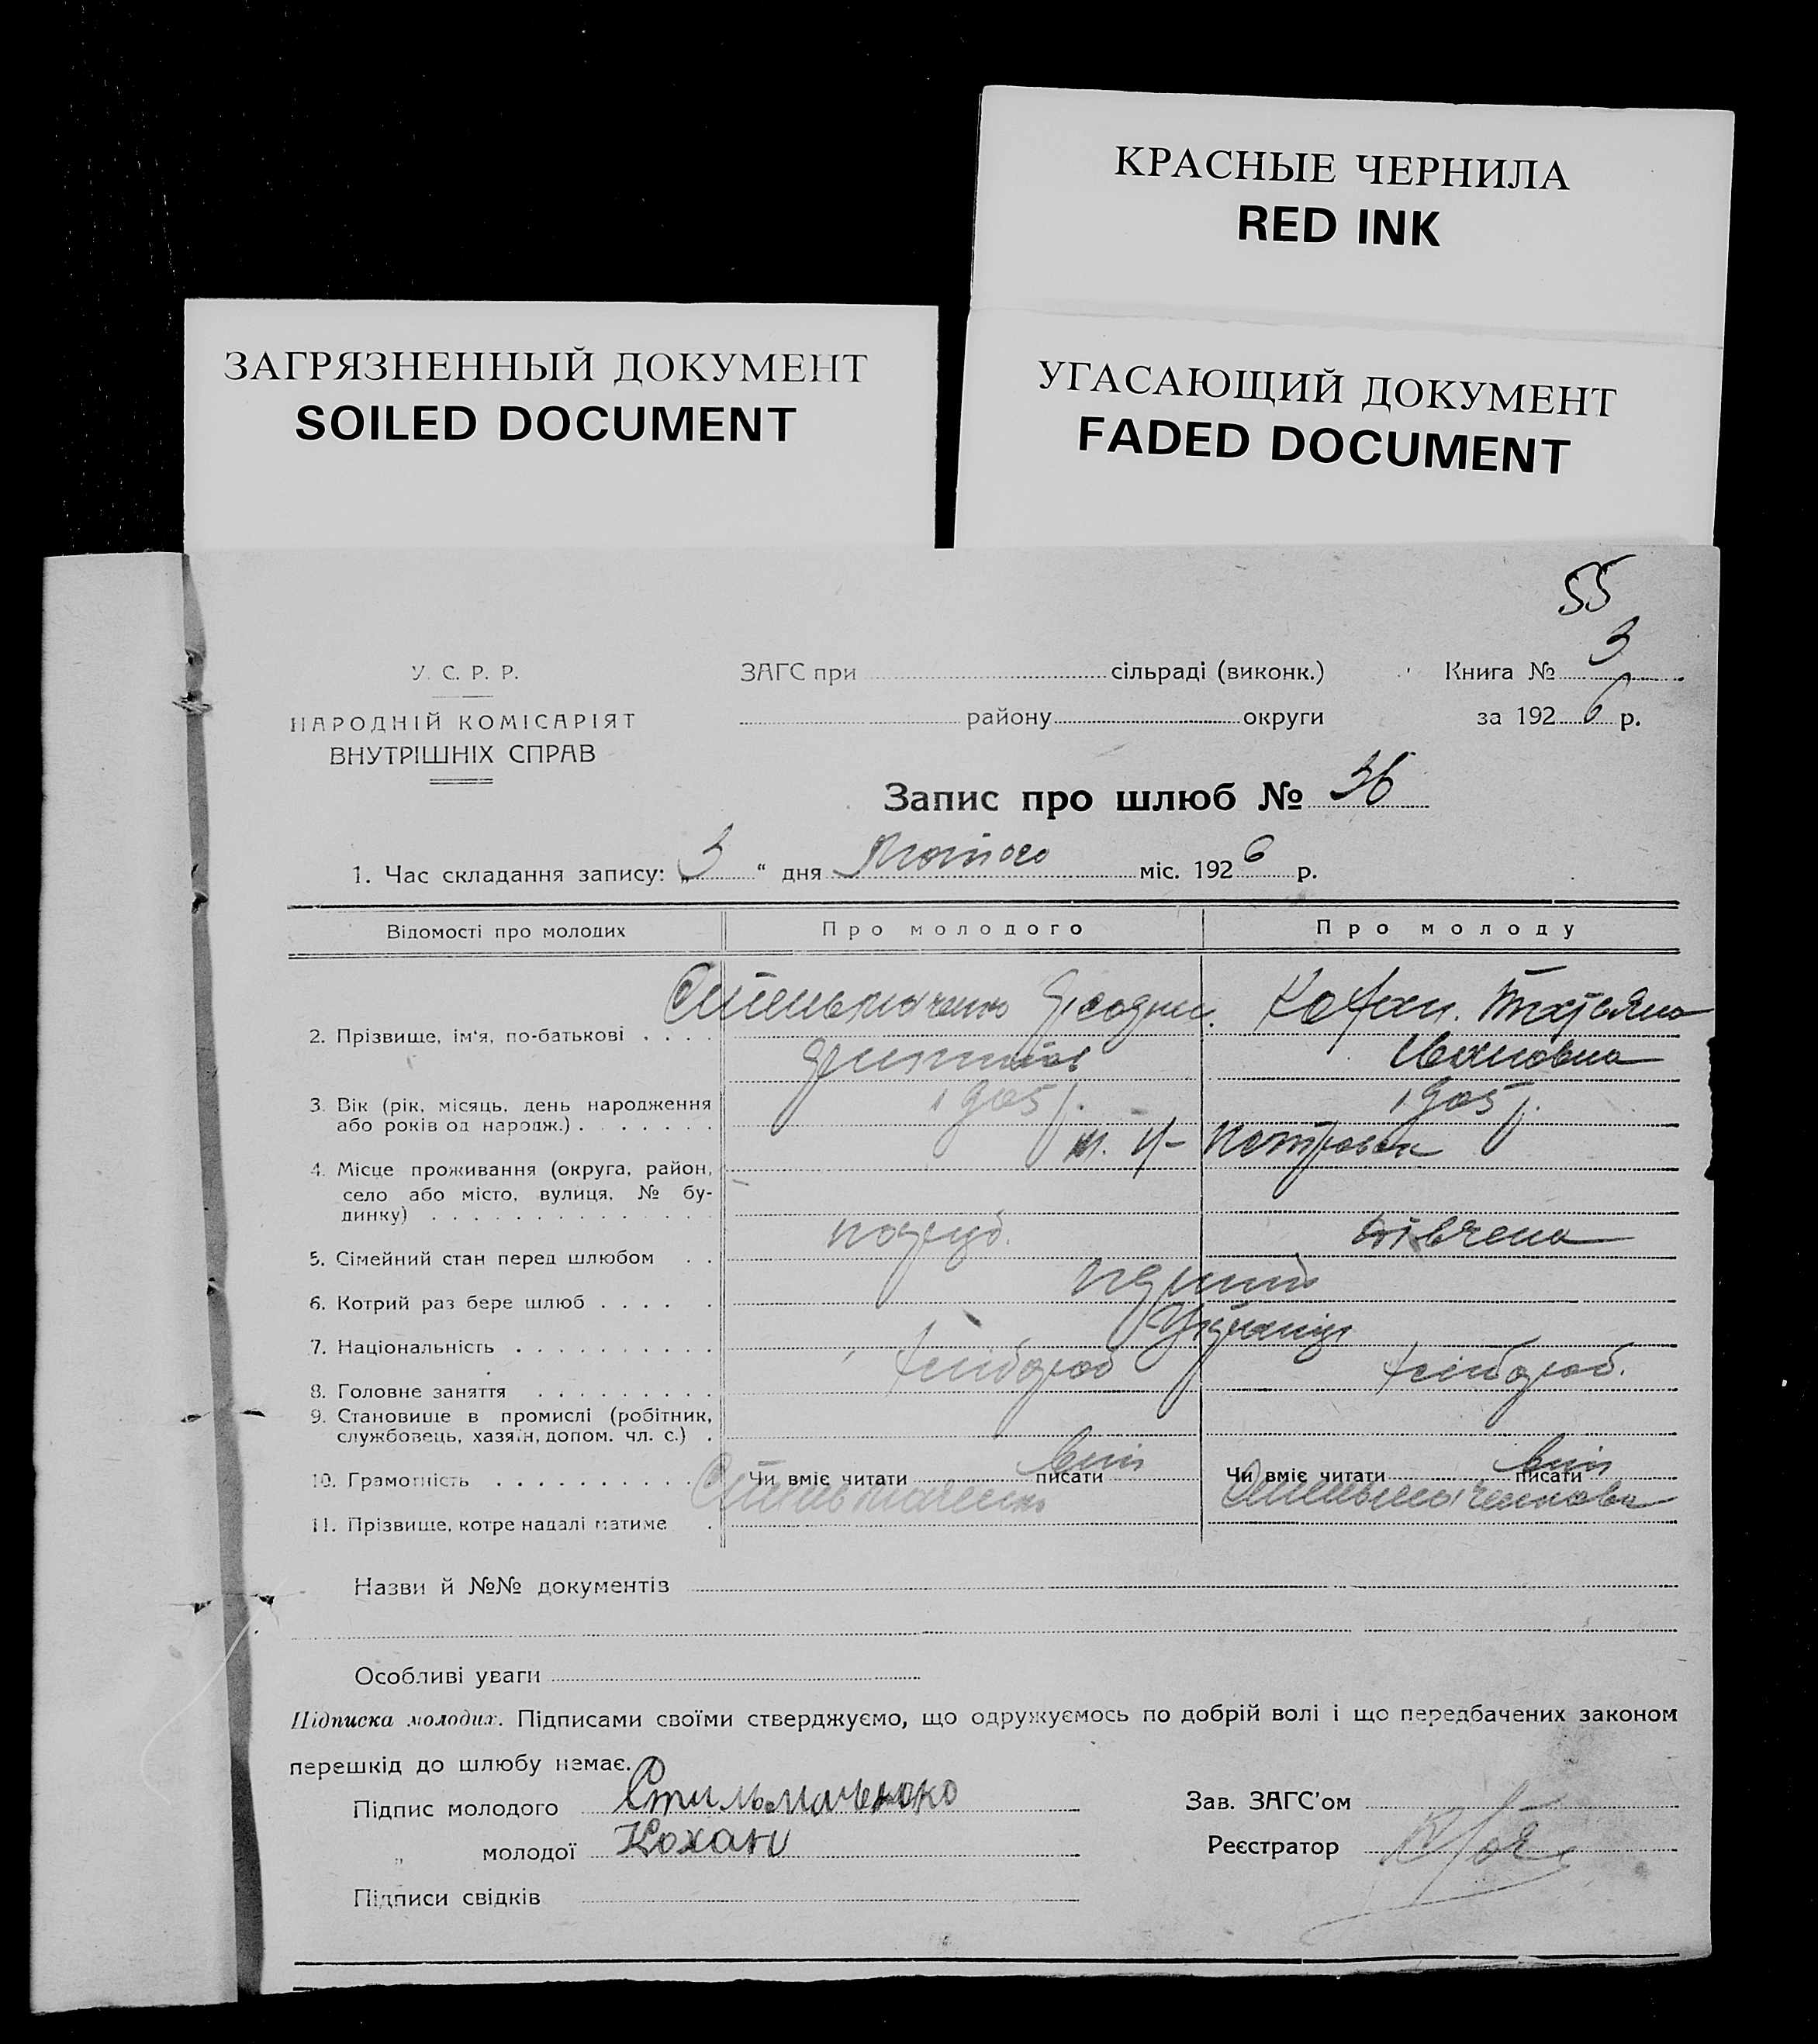 КРАСНЫЕ ЧЕРНИЛА
RED INK
ЗАГРЯЗНЕННЫЙ ДОКУМЕНТ
SOILED DOCUMENT
УГАСАЮЩИЙ ДОКУМЕНТ
FADED DOCUMENT
55
У. С. Р. Р.
ЗАГС при сільраді (виконк.)
Книга № 3
НАРОДНІЙ КОМІСАРІЯТ
ВНУТРІШНІХ СПРАВ
району округи
за 1926 р.
Запис про шлюб № 36
1. Час складання запису: „3“ дня Лютого міс. 1926 р.
Відомості про молодих Про молодого Про молоду
2. Прізвище, ім'я, по-батькові Кохан. Татьяна
Ивановна
3. Вік (рік, місяць, день народження 1905 р. 1905 р.
або років од народж.)
4. Місце проживання (округа, район, Петровск
село або місто, вулиця, № бу-
динку)
5. Сімейний стан перед шлюбом дівчена
6. Котрий раз бере шлюб перший
7. Національність Українці
8. Головне заняття хлібороб хлібороб.
9. Становище в промислі (робітник,
службовець, хазяїн, допом. чл. с.)
10. Грамотність Чи вміє читати писати вміє Чи вміє читати писати вміє
11. Прізвище, котре надалі матиме
Назви й №№ документів
Особливі уваги
Підписка молодих. Підписами своїми стверджуємо, що одружуємось по добрій волі і що передбачених законом
перешкід до шлюбу немає.
Підпис молодого Стильмаченко
Зав. ЗАГС'ом
„ молодої Кохан
Реєстратор
Підписи свідків